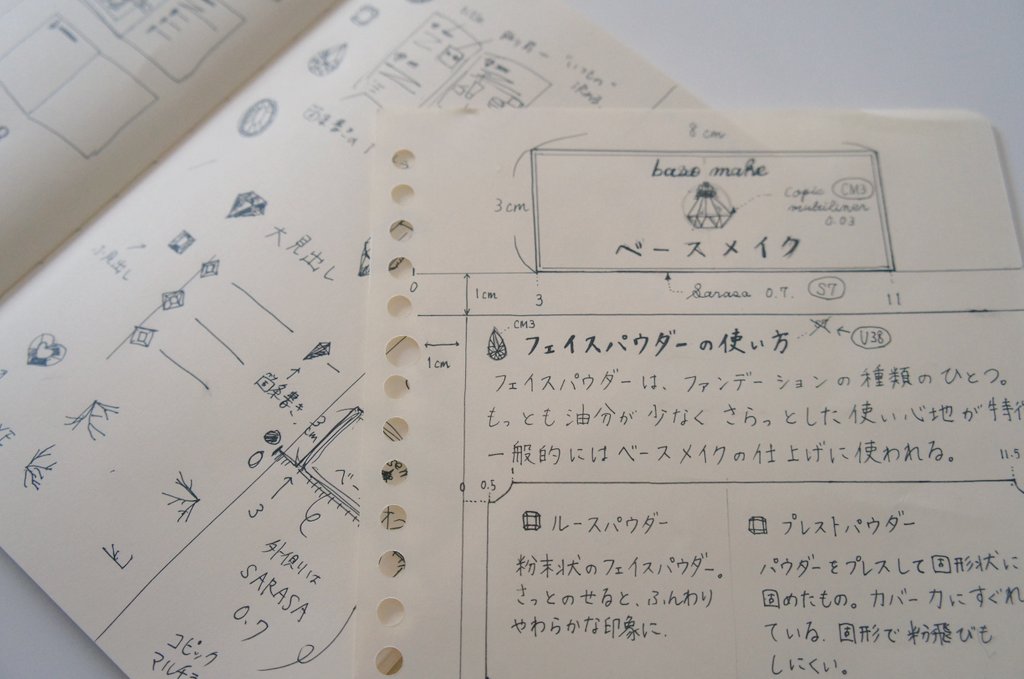 8cm
base make
Copic CM3
multiliner
0.03
3cm
ベースメイク
Sarasa 0.7. S7
0
1cm
3
11
1cm
CM3
フェイスパウダーの使い方
U38
フェイスパウダーは、ファンデーションの種類のひとつ。
もっとも油分が少なくさらっとした使い心地が特徴
一般的にはベースメイクの仕上げに使われる。
11.5
0
0.5
ルースパウダー
粉末状のフェイスパウダー。
さっとのせると、ふんわり
やわらかな印象に.
プレストパウダー
パウダーをプレスして固形状に
固めたもの。カバー力にすぐれ
ている. 固形で粉飛びも
しにくい。
大見出し
小見出し
箇条書き
3cm
0
3
ベー
外側は
SARASA
0.7
コピック
マルチ